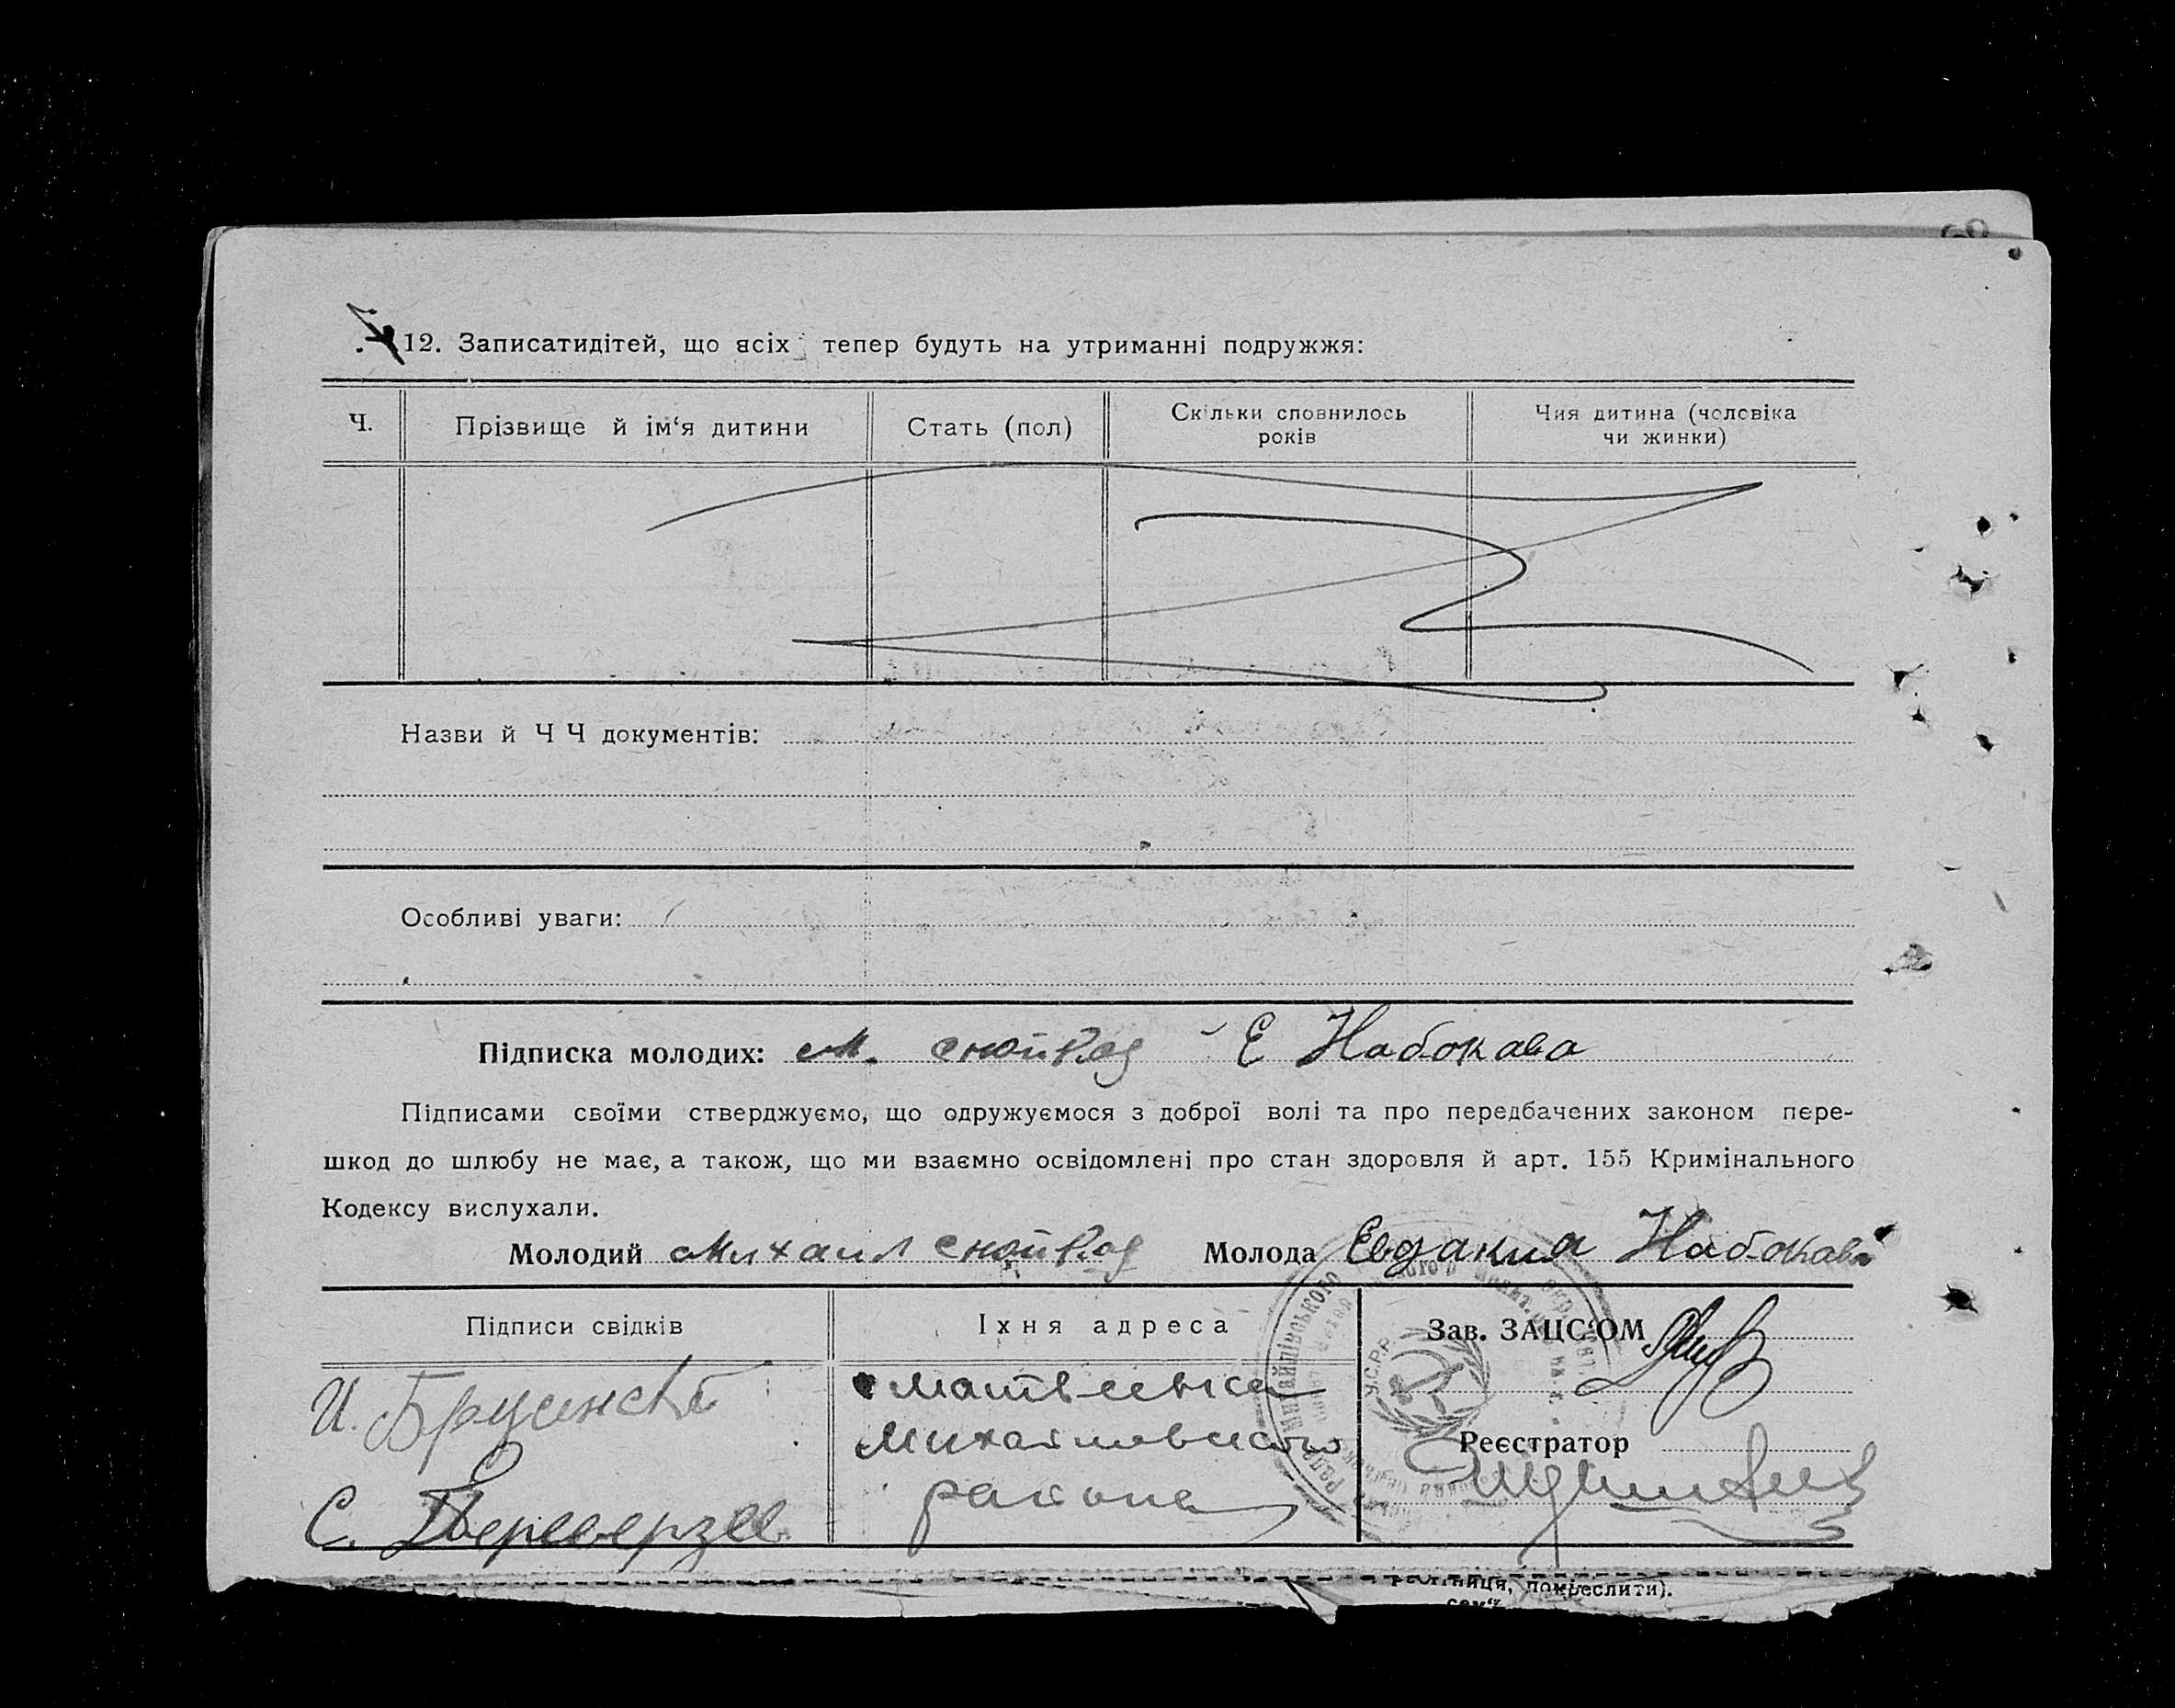 12. Записатидітей, що всіх тепер будуть на утриманні подружжя:
Ч.
Прізвище й ім‘я дитини
Стать (пол)
Скільки сповнилось
років
Чия дитина (чоловіка
чи жинки)
Назви й Ч Ч документів:
Особливі уваги:
Підписка молодих: М. Е Набокава
Підписами своїми стверджуємо, що одружуємося з доброї волі та про передбачених законом пере-
шкод до шлюбу не має, а також, що ми взаємно освідомлені про стан здоровля й арт. 155 Кримінального
Кодексу вислухали.
Молодий Михаил Молода Евдакия Набокава
Підписи свідків
Іхня адреса
Зав. ЗАЦС‘ОМ
И.
С.
Матвеевка
Михайловского
района
Реєстратор
У.С.Р.Р.
Михайлівського
покреслити).